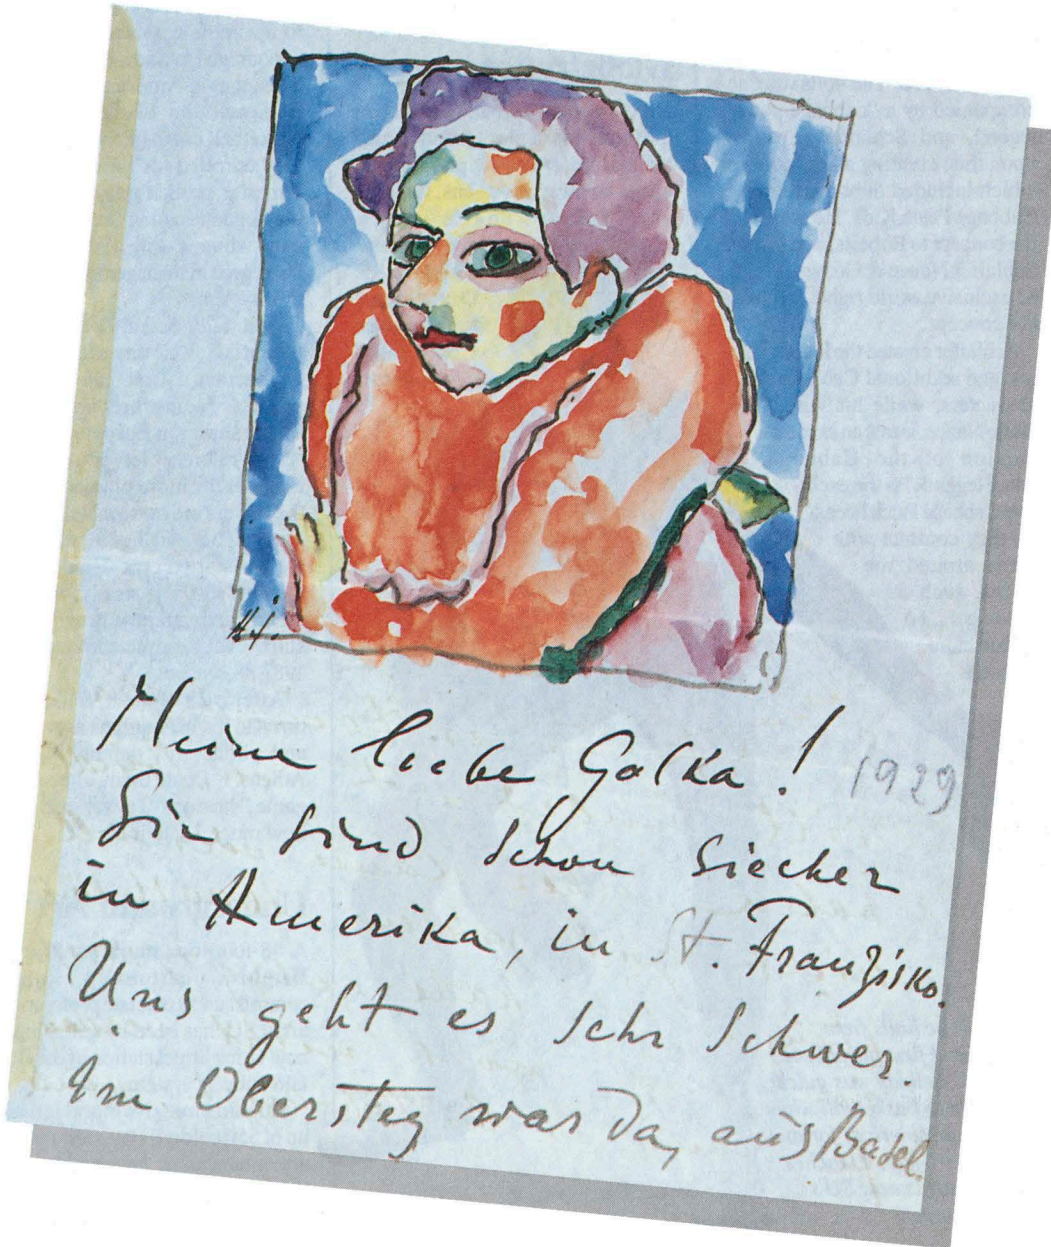 A.J.
Meine liebe Galka! 1929
Sie sind schon siecher
in Amerika, in St. Franzisko.
Uns geht es sehr schwer.
Im Obersteg war da, aus Basel.